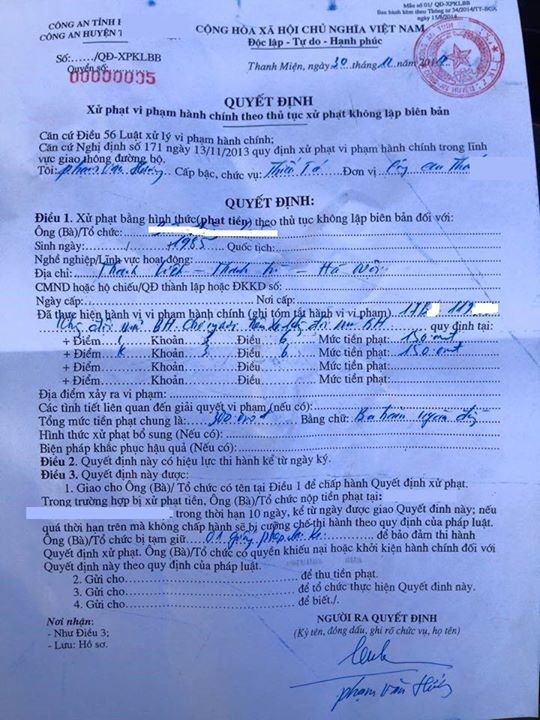 Mẫu số 01/ QĐ-XPKLBB
Ban hành kèm theo Thông tư 34/2014/TT-BCA
ngày 15/8/2014
CÔNG AN TỈNH
CÔNG AN HUYỆN T
CỘNG HÒA XÃ HỘI CHỦ NGHĨA VIỆT NAM
Độc lập - Tự do - Hạnh phúc
Số:....../QĐ-XPKLBB
Quyển số:
00000005
Thanh Miện, ngày 30 tháng 11 năm
QUYẾT ĐỊNH
Xử phạt vi phạm hành chính theo thủ tục xử phạt không lập biên bản
Căn cứ Điều 56 Luật xử lý vi phạm hành chính;
Căn cứ Nghị định số 171 ngày 13/11/2013 quy định xử phạt vi phạm hành chính trong lĩnh
vực giao thông đường bộ.
Tôi: Phạm Văn Cấp bậc, chức vụ: Thiếu tá Đơn vị Công an
QUYẾT ĐỊNH:
Điều 1. Xử phạt bằng hình thức (phạt tiền) theo thủ tục không lập biên bản đối với:
Ông (Bà)/Tổ chức:
Sinh ngày: / /1985 Quốc tịch:
Nghề nghiệp/Lĩnh vực hoạt động:
Địa chỉ: Thanh - Thanh - Hà Nội
CMND hoặc hộ chiếu/QĐ thành lập hoặc ĐKKD số:
Ngày cấp: Nơi cấp:
Đã thực hiện hành vi vi phạm hành chính (ghi tóm tắt hành vi vi phạm) 17B
đội mũ BH. Chở người đội mũ BH quy định tại:
+ Điểm i Khoản 3 Điều 6 Mức tiền phạt: 150.000đ
+ Điểm k Khoản 3 Điều 6 Mức tiền phạt: 150.000đ
+ Điểm Khoản Điều Mức tiền phạt:
+ Điểm Khoản Điều Mức tiền phạt:
Địa điểm xảy ra vi phạm:
Các tình tiết liên quan đến giải quyết vi phạm (nếu có):
Tổng mức tiền phạt chung là: 300.000đ Bằng chữ: Ba trăm ngàn đồng
Hình thức xử phạt bổ sung (Nếu có):
Biện pháp khắc phục hậu quả (Nếu có):
Điều 2. Quyết định này có hiệu lực thi hành kể từ ngày ký.
Điều 3. Quyết định này được:
1. Giao cho Ông (Bà)/ Tổ chức có tên tại Điều 1 để chấp hành Quyết định xử phạt.
Trong trường hợp bị xử phạt tiền, Ông (Bà)/Tổ chức nộp tiền phạt tại:
trong thời hạn 10 ngày, kể từ ngày được giao Quyết định này; nếu
quá thời hạn trên mà không chấp hành sẽ bị cưỡng chế thi hành theo quy định của pháp luật.
Ông (Bà)/Tổ chức bị tạm giữ 01 giấy phép lái xe để bảo đảm thi hành
Quyết định xử phạt. Ông (Bà)/Tổ chức có quyền khiếu nại hoặc khởi kiện hành chính đối với
Quyết định này theo quy định của pháp luật.
2. Gửi cho để thu tiền phạt.
3. Gửi cho để tổ chức thực hiện Quyết định này.
4. Gửi cho để biết./.
Nơi nhận:
- Như Điều 3;
- Lưu: Hồ sơ.
NGƯỜI RA QUYẾT ĐỊNH
(Ký tên, đóng dấu, ghi rõ chức vụ, họ tên)
Phạm Văn